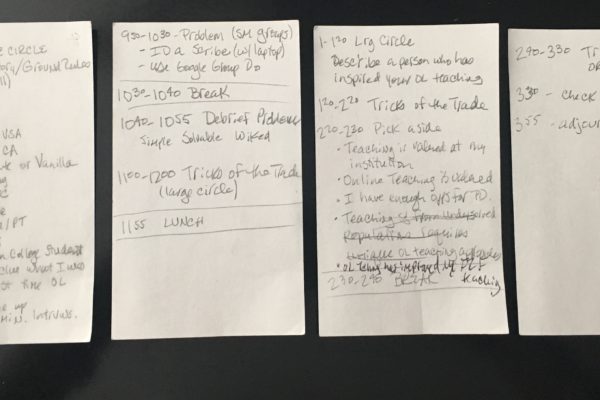 CIRCLE
/Ground Rules
VSA
CA
or Vanilla
/PT
College Student
what I was
OL
up
min. Intrvws.
930-1030- Problem (sm groups)
- ID a Scribe (w/laptop)
- Use Google Group Do
1030-1040 Break
1040-1055 Debrief Problems
Simple Solvable Wicked
1100-1200 Tricks of the Trade
(large circle)
1155 LUNCH
1-120 Lrg Circle
Describe a person who has
inspired your OL teaching
120-220 Tricks of the Trade
220-230 Pick a side
• Teaching is valued at my
institution
• Online Teaching is valued
• I have enough opps for PD.
• Teaching
Populations requires
unique OL teaching
• OL has improved my F2F
teaching
230-240 BREAK
240-330 Tr
330- check
355- adjour